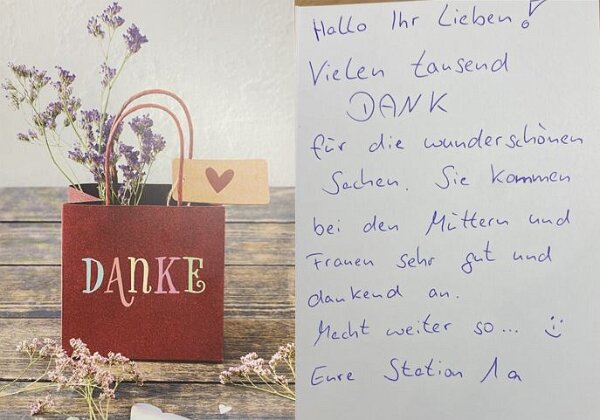 DANKE
Hallo Ihr Lieben!
Vielen tausend
DANK
für die wunderschönen
Sachen. Sie kommen
bei den Müttern und
Frauen sehr gut und
dankend an.
Macht weiter so... :)
Eure Station 1a